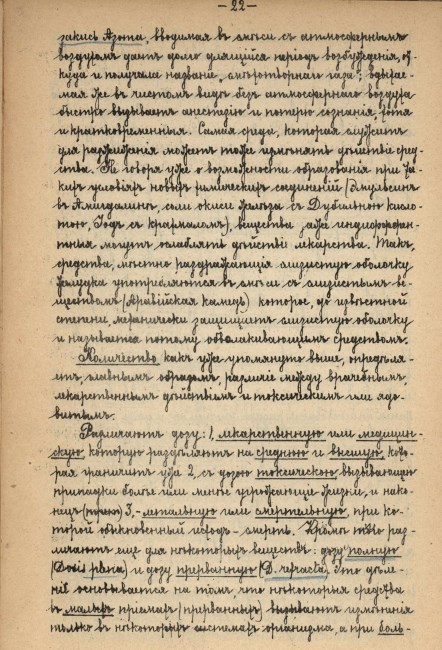 - 22 -
закись Азота, вводимая въ смѣси съ атмосфернымъ
воздухомъ даетъ долго длящійся періодъ возбужденія, от-
куда и получила названіе „смѣхотворнаго газа“; вдыхае-
мая же въ чистомъ видѣ безъ атмосфернаго воздуха
быстро вызываетъ анестезію и потерю сознанія, хотя
и кратковременныя. Самая среда, которая служитъ
для разжиженія можетъ тоже измѣнять дѣйствіе сред-
ства. Не говоря уже о возможности образованія при та-
кихъ условіяхъ новыхъ химическихъ соединеній (Эмульсинъ
въ Амигдалинъ, соли окиси желѣза съ Дубильною кисло-
тою, Іодъ съ крахмаломъ), вещества даже индифферент-
ныя могутъ ослаблять дѣйствіе лекарства. Такъ,
средства, мѣстно раздражающія слизистую оболочку
желудка употребляются въ смѣси съ слизистымъ ве-
ществомъ (Аравійская камедь) которое, до извѣстной
степени, механически защищаетъ слизистую оболочку
и называется потому обволакивающимъ средствомъ.
Количество какъ уже упомянуто выше, опредѣля-
етъ, главнымъ образомъ, различіе между врачебнымъ,
лекарственнымъ дѣйствіемъ и токсическимъ или ядо-
витымъ.
Различаютъ дозу: 1, лекарственную или медицин-
скую, которую раздѣляютъ на среднюю и высшую, кото-
рая граничитъ уже 2, съ дозою токсическою вызывающею
припадки болѣе или менѣе угрожающіе жизни, и нако-
нецъ 3, - летальную или смертельную, при ко-
торой обыкновенный исходъ - смерть. Кромѣ того раз-
личаютъ еще для нѣкоторыхъ веществъ: дозу полную
(Dosis plena) и дозу прерванную (D. refracta). Это дѣле-
ніе основывается на томъ, что нѣкоторыя средства
въ малыхъ пріемахъ (прерванныхъ) вызываютъ измѣненія
только въ нѣкоторыхъ системахъ организма, а при боль-